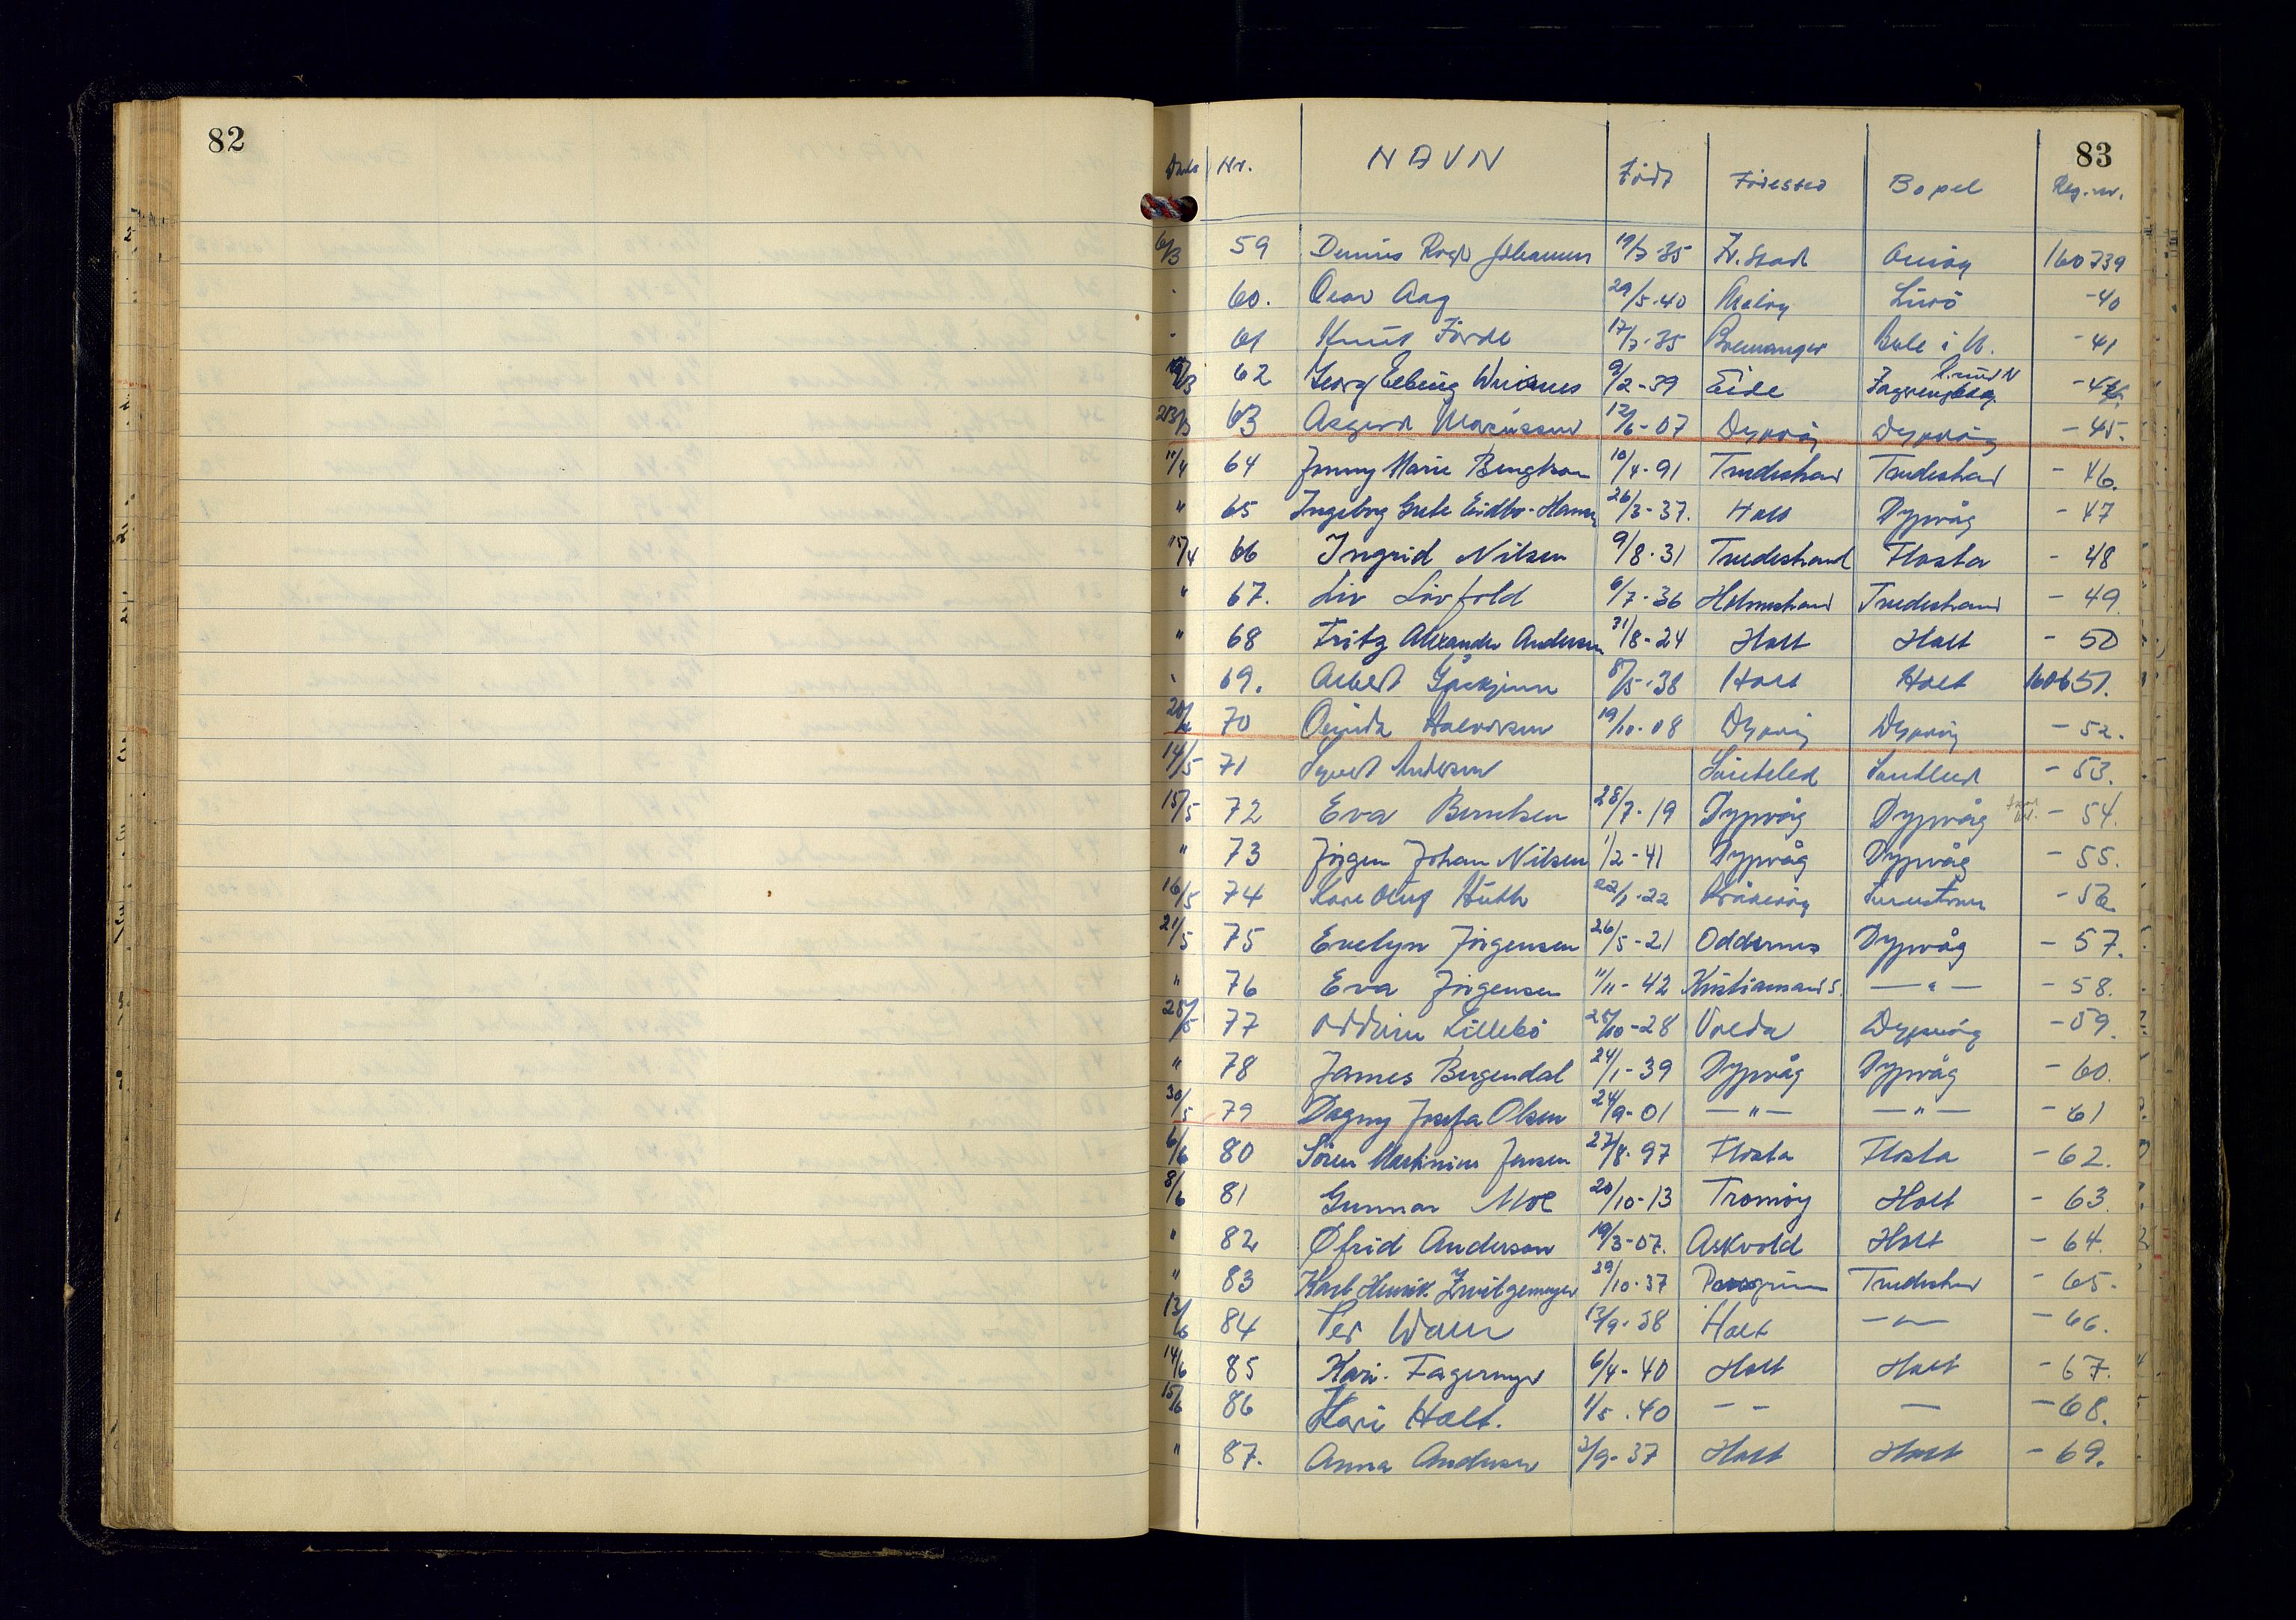 82
83
Dato Nr. NAVN Født Fødested Bopel Reg.nr.
6/3 59 Dennis Johannesen 19/7-35 160739
- 60. Aag 29/5-40 Måløy -40
- 61 Knut Förde 17/7-35 Bremanger -41
62 Georg 9/2-39 Eide
23/3 63 Asgerd Mariussen 12/6-07 Dypvåg Dypvåg -45.
11/4 64 Jenny Marie Bengtson 10/4-91 Tvedestrand Tvedestrand - 46.
" 65 Ingeborg Grete Eidbo-Hansen 26/3-37. Holt Dypvåg - 47
15/4 66 Ingrid Nilsen 9/8-31 Tvedestrand Flosta - 48
" 67. Liv Lövfold 6/7-36 Holmestrand Tvedestrand - 49.
" 68 Fritz Alexander Andersen 31/8-24 Holt Holt - 50
- 69. Albert 8/5-38 Holt Holt 160651.
20/4 70 Halvorsen 19/10-08 Dypvåg Dypvåg - 52.
14/5 71 Syvert Andersen Söndeled Söndeled - 53.
15/5 72 Eva Berntsen 28/7-19 Dypvåg Dypvåg - 54.
" 73 Jörgen Johan Nilsen 1/2-41 Dypvåg Dypvåg - 55.
16/5 74 Kåre Oluf 22/1-22 - 56
21/5 75 Evelyn Jörgensen 26/5-21 Oddernes Dypvåg - 57.
" 76 Eva Jörgensen 11/11-42 Kristiansand S. —"— - 58.
28/5 77 Oddvin Lillebö 25/10-28 Volda Dypvåg -59.
" 78 James Bergendal 24/1-39 Dypvåg Dypvåg - 60.
30/5 79 Dagny Josefa Olsen 24/9-01 —"— —"— - 61
6/6 80 Sören Martinius Jensen 27/8-97 Flosta Flosta - 62.
8/6 81 Gunnar Moe 20/10-13 Tromöy Holt - 63.
" 82 Øfrid Anderson 19/3-07. Askvold Holt - 64.
" 83 Karl Henrik Zwilgemeyer 29/10-37 Porsgrunn Tvedestrand - 65.
13/6 84 Per Waler 13/9-38 Holt —"— - 66.
14/6 85 Kari Fagermyr 6/4-40 Holt Holt - 67.
15/6 86 Kari Holt. 1/5.40 - - — - 68.
" 87. Anna Andersen 3/9-37 Holt Holt - 69.